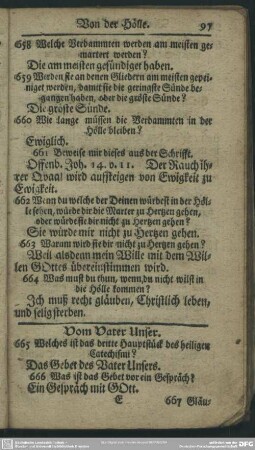 Von der Hölle. 97
658 Welche Verdammten werden am meisten ge-
martert werden?
Die am meisten gesündiget haben.
659 Werden sie an denen Gliedern am meisten gepei-
niget werden, damit sie die geringste Sünde be-
gangen haben, oder die gröste Sünde?
Die gröste Sünde.
660 Wie lange müssen die Verdammten in der
Hölle bleiben?
Ewiglich.
661 Beweise mir dieses aus der Schrifft.
Offend. Joh. 14. v. 11. Der Rauch ih-
rer Quaal wird aufsteigen von Ewigkeit zu
Ewigkeit.
662 Wenn du welche der Deinen würdest in der Höl-
le sehen, würde dir die Marter zu Hertzen gehen,
oder würde sie dir nicht zu Hertzen gehen?
Sie würde mir nicht zu Hertzen gehen.
663 Warum wird sie dir nicht zu Hertzen gehen?
Weil alsdenn mein Wille mit dem Wil-
len GOttes übereinstimmen wird.
664 Was must du thun, wenn du nicht wilst in
die Hölle kommen?
Ich muß recht gläuben, Christlich leben,
und selig sterben.
Vom Vater Unser.
665 Welches ist das dritte Hauptstück des heiligen
Catechismi?
Das Gebet des Vater Unsers.
666 Was ist das Gebet vor ein Gespräch?
Ein Gespräch mit GOtt.
E 667 Gläu-